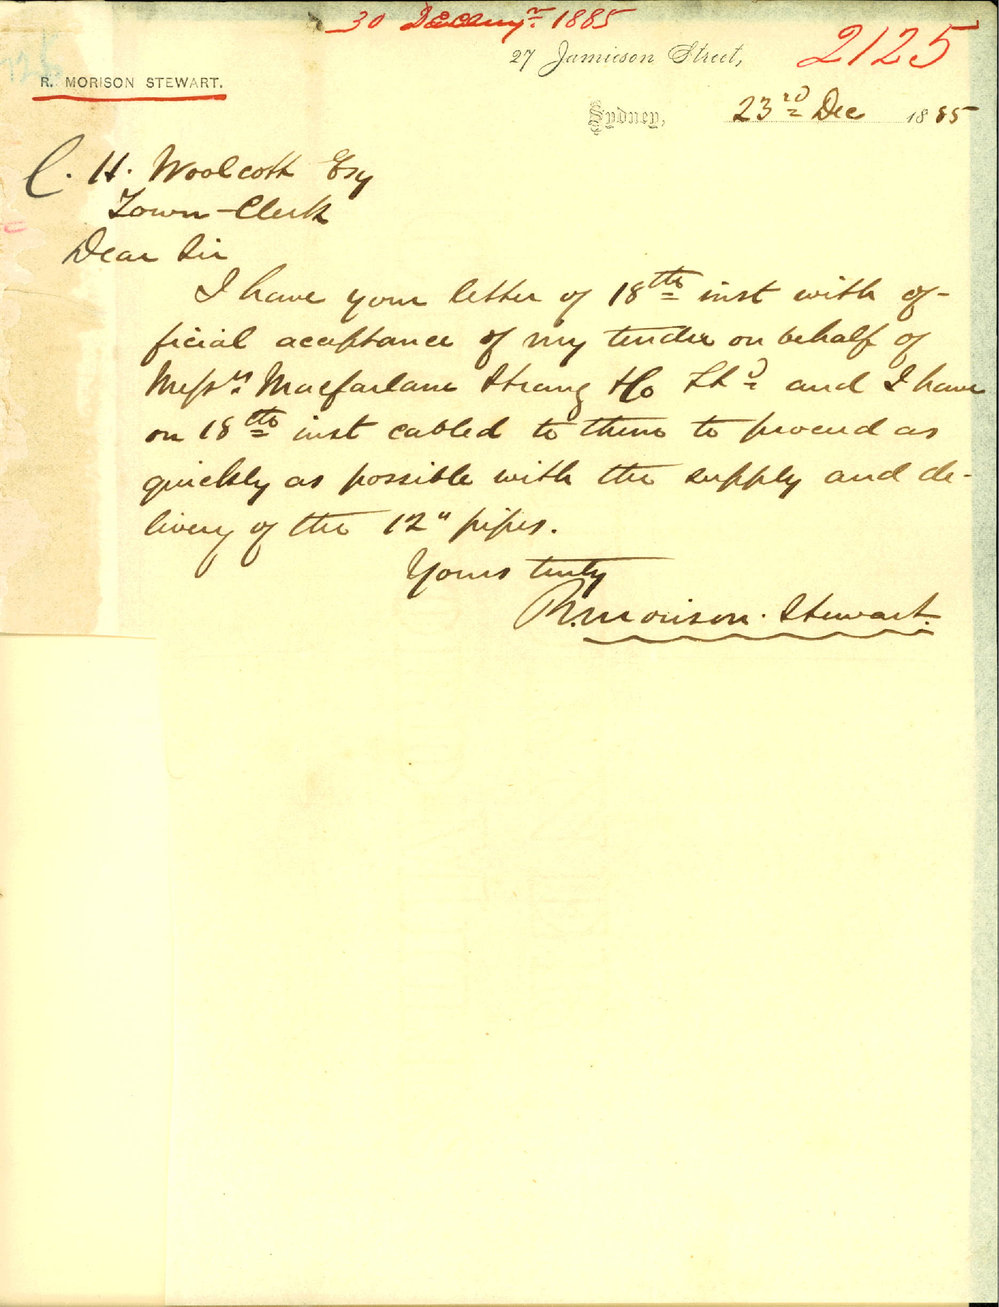 30 Decemr. 1885
2125
27 Jamieson Street,
R. MORISON STEWART.
Sydney, 23rd Dec 1885
C. H. Woolcott Esq
Town-Clerk
Dear Sir
I have your letter of 18th inst with of-
ficial acceptance of my tender on behalf of
Messrs Macfarlane Strang & Co Ltd and I have
on 18th inst cabled to them to proceed as
quickly as possible with the supply and de-
livery of the 12" pipes.
Yours truly
R. Morison. Stewart.